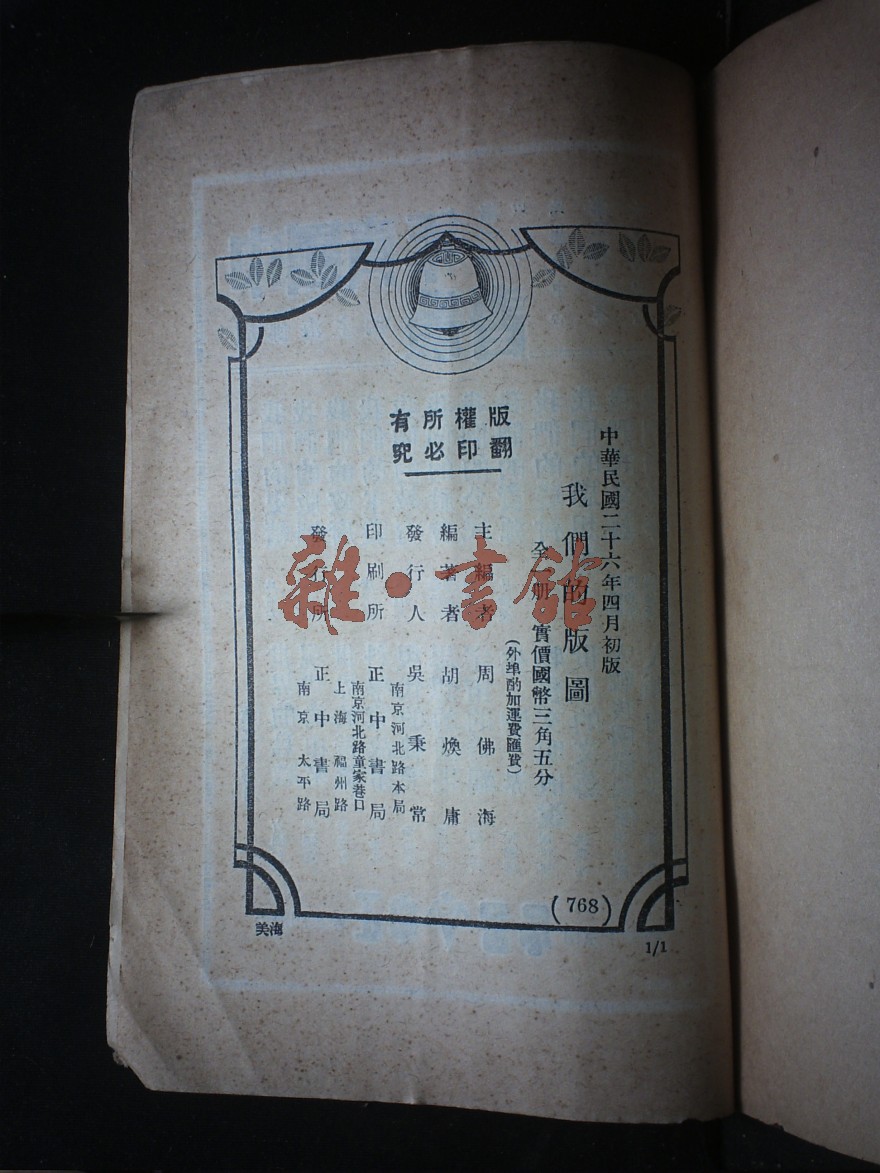 版權所有
翻印必究
中華民國二十六年四月初版
我們的版圖
全一册 實價國幣三角五分
(外埠酌加運費匯費)
主編者 周佛海
編著者 胡煥庸
發行人 吳秉常
南京河北路本局
印刷所 正中書局
南京河北路童家巷口
上海福州路
發行所 正中書局
南京太平路
(768)
美海
1/1
雜·書館